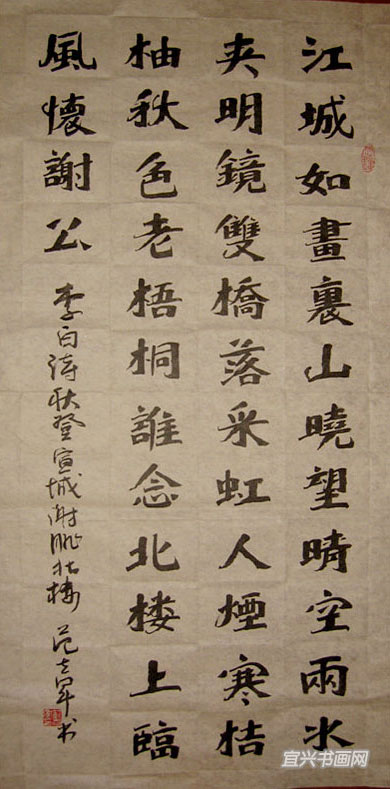 江城如畫裏山曉望晴空雨水
夹明鏡雙橋落采虹人煙寒桔
柚秋色老梧桐誰念北樓上臨
風懷謝公
李白诗秋登宣城谢朓北楼 范士军书
宜兴书画网